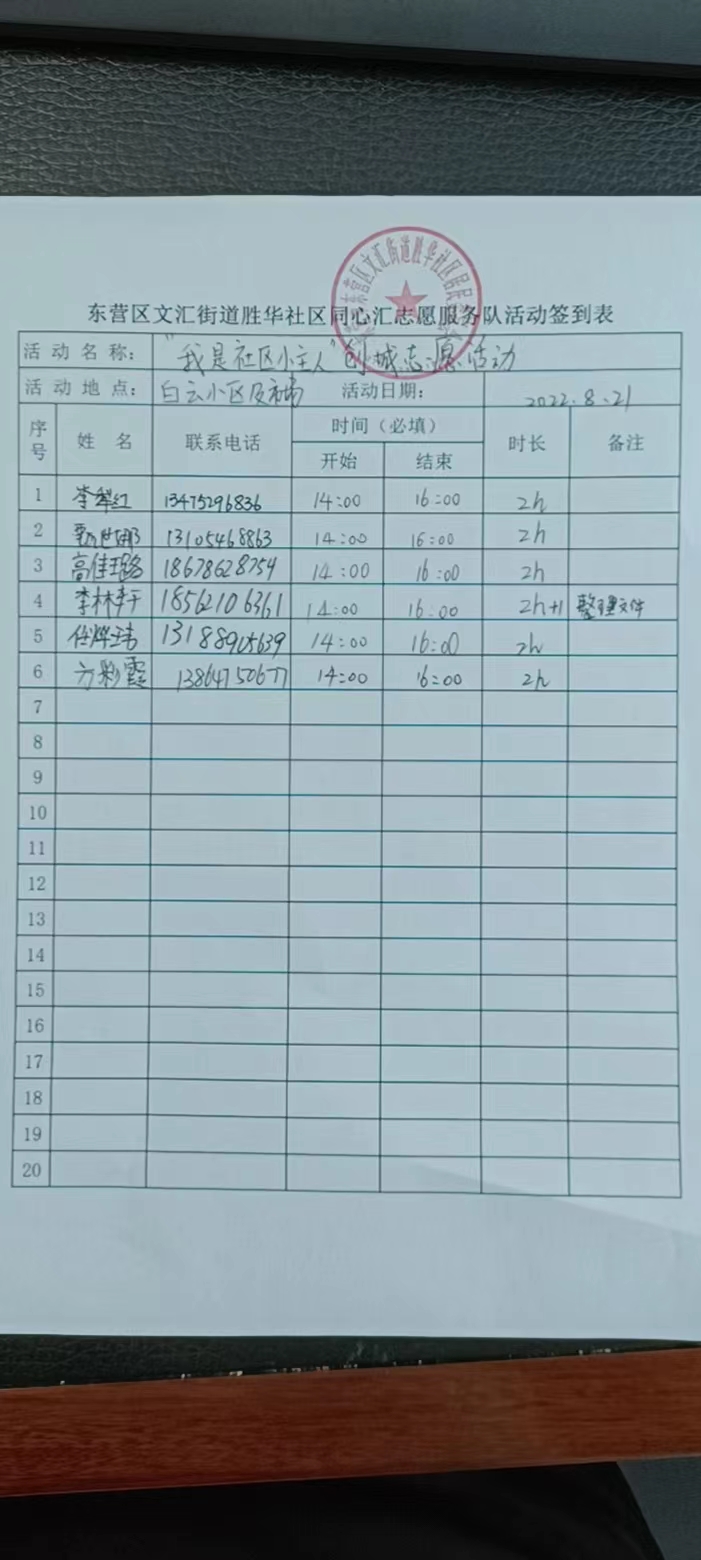 东营区文汇街道胜华社区居民
东营区文汇街道胜华社区同心汇志愿服务队活动签到表
活动名称： "我是社区小主人"创城志愿活动
活动地点： 白云小区 活动日期： 2022.8.21
序号 姓名 联系电话 时间（必填） 时长 备注
开始 结束
1 李翠红 13475296836 14:00 16:00 2h
2 13105468863 14:00 16:00 2h
3 高佳璐 18678628754 14:00 16:00 2h
4 李林 18562106361 14:00 16:00 2h+1 整理文件
5 任烨玮 13188905639 14:00 16:00 2h
6 方彩霞 13864750677 14:00 16:00 2h
7
8
9
10
11
12
13
14
15
16
17
18
19
20